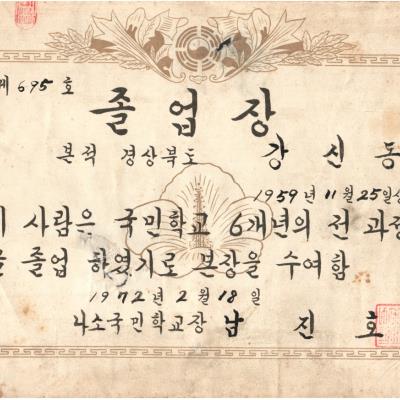 제 695 호
졸업장
본적 경상북도 강신동
1959년 11월 25일생
이 사람은 국민학교 6개년의 전 과정
을 졸업 하였기로 본장을 수여함
1972년 2월 18일
나소국민학교장 남진호